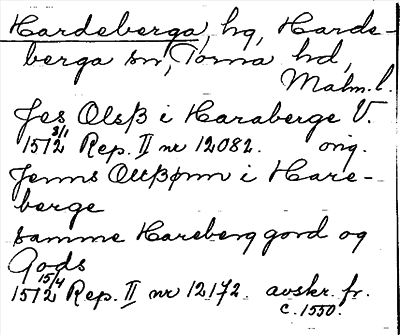 Hardeberga, hg, Harde-
berga sn, Torna hd,
Malm. l.
Jes Olsß i Haraberge V.
1512 3/1 Rep. II nr 12082. orig.
Jenns Olßønn i Hare-
berge
samme Hareberg gord og
Gods
1512 15/4 Rep. II nr 12172. avskr. fr.
c. 1550.